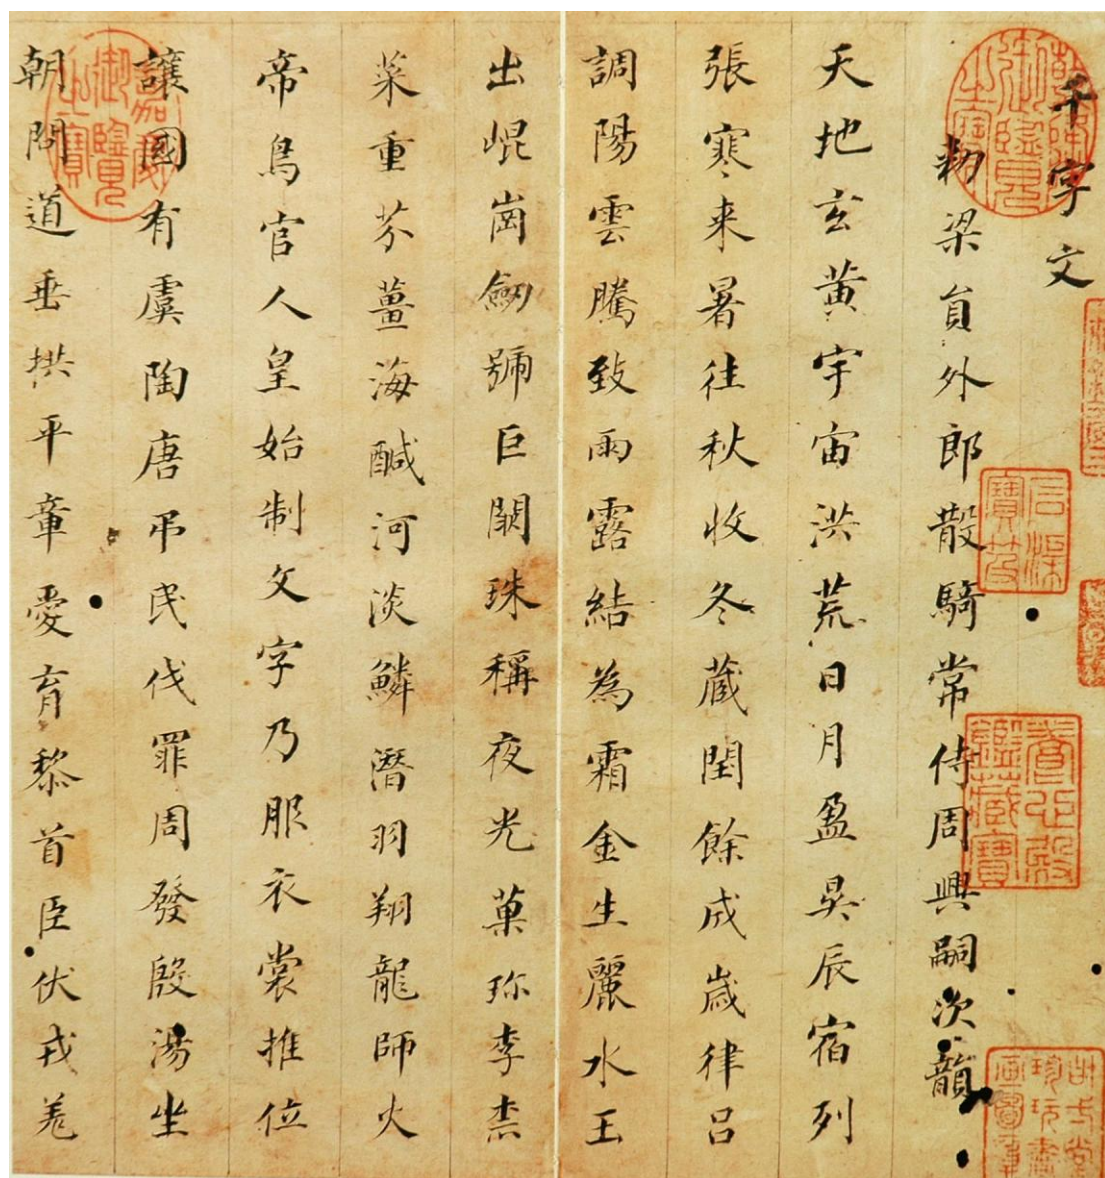 千字文
勑梁貟外郎散騎常侍周興嗣次韻
天地玄黃宇宙洪荒日月盈昃辰宿列
張寒来暑往秋收冬蔵閏餘成歳律呂
調陽雲騰致雨露結為霜金生麗水玉
出崐崗劒號巨闕珠稱夜光菓珎李柰
菜重芥薑海醎河淡鱗潛羽翔龍師火
帝鳥官人皇始制文字乃服衣裳推位
讓國有虞陶唐弔民伐罪周發殷湯坐
朝問道垂拱平章愛育黎首臣伏戎羌
乾隆御覽之寶
石渠寶笈
養心殿鑑藏寶
嘉慶御覽之寶